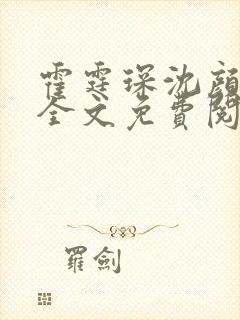 霍霆琛沈顔
全文免費閱
羅劍